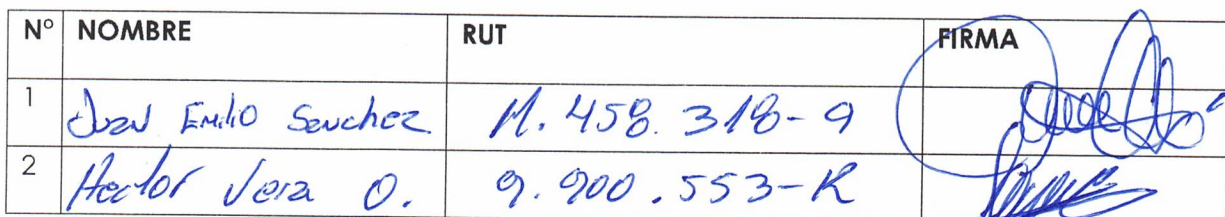 Nº NOMBRE RUT FIRMA
1 Juan Emilio Sanchez 11.458.318-9
2 Hector Vera O. 9.900.553-K